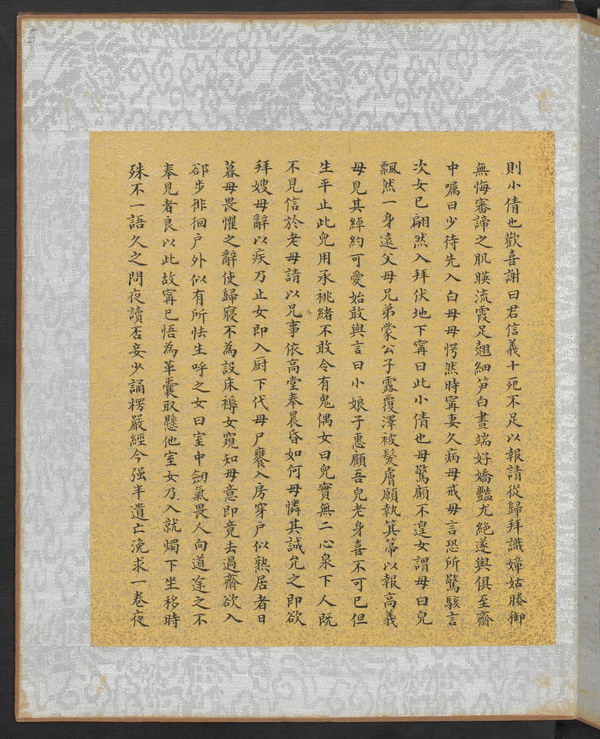 則小倩也歡喜謝曰君信義十死不足以報請從歸拜識嫜姑媵御
無悔審諦之肌暎流霞足翹細笋白晝端好嬌豔尤絕遂與俱至齋
中囑曰少待先入白母母愕然時甯妻久病母戒毋言恐所驚駭言
次女已翩然入拜伏地下甯曰此小倩也母驚顧不遑女謂母曰兒
飄然一身遠父母兄弟蒙公子露覆澤被髮膚願執箕箒以報高義
母見其綽約可愛始敢與言曰小娘子惠顧吾兒老身喜不可已但
生平止此兒用承祧緒不敢令有鬼偶女曰兒實無二心泉下人既
不見信於老母請以兄事依高堂奉晨昏如何母憐其誠允之即欲
拜嫂母辭以疾乃止女即入厨下代母尸饔入房穿戶似熟居者日
暮母畏懼之辭使歸寢不為設床褥女窺知母意即竟去過齋欲入
郤步徘徊戶外似有所怯生呼之女曰室中劒氣畏人向道途之不
奉見者良以此故甯已悟為革囊取懸他室女乃入就燭下坐移時
殊不一語久之問夜讀否妾少誦楞嚴經今强半遺亡浼求一卷夜